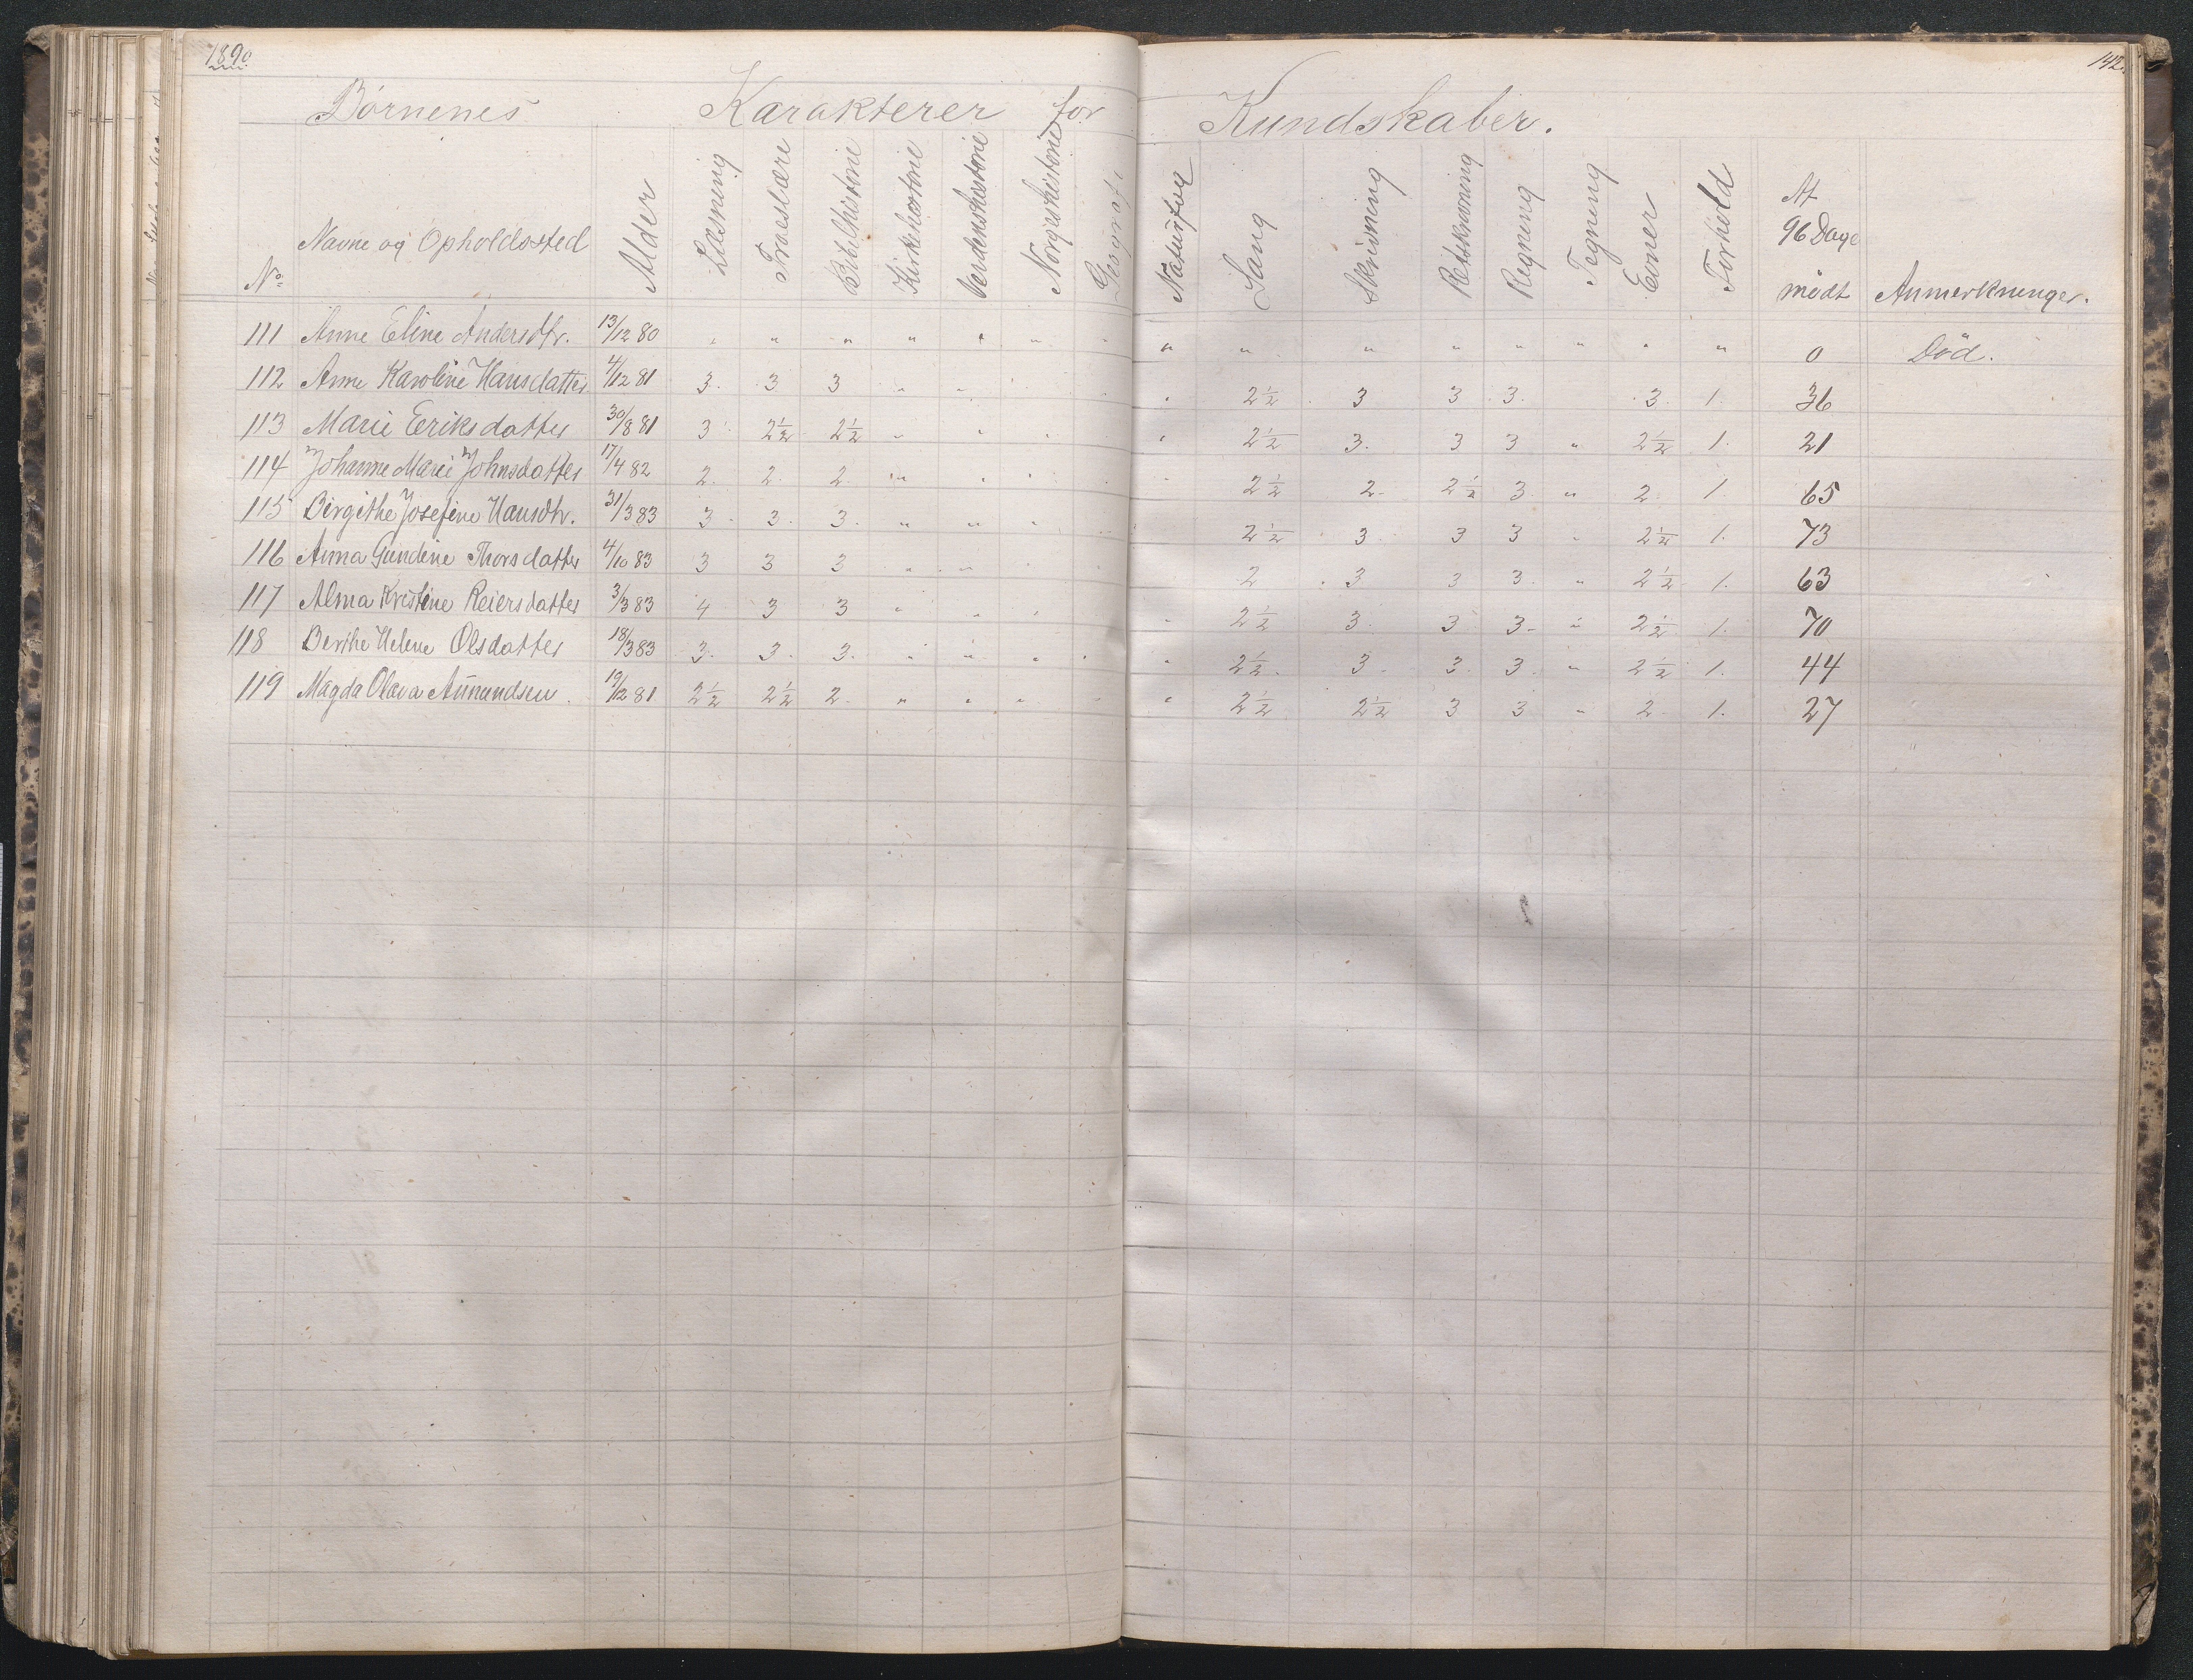 1890
142.
Børnenes Karakterer for Kundskaber.
No Navne og Opholdssted Alder Læsning Troeslære Bibelhistorie Kirkehistorie Verdenshistorie Norgeshistorie Geografi Naturfag Sang Skrivning Retskrivning Regning Tegning Evner Forhold Af 96 Dage mødt Anmerkninger.
111 Anne Eline Andersdtr. 13/12 80 " " " " " " " " " " " " " " " 0 Død.
112 Anne Karoline Hansdatter 4/12 81 3. 3 3 " " " " " 2½ 3 3 3. 3. 1. 36
113 Marie Eeriksdatter 30/8 81 3 2½ 2½ " " " " " 2½ 3. 3 3 " 2½ 1. 21
114 Johanne Marie Johnsdatter 17/4 82 2. 2. 2 " " " " " 2½ 2. 2½ 3. " 2 1. 65
115 Birgithe Josefine Hansdtr. 31/3 83 3 3. 3. " " " " 2½ 3 3 3 " 2½ 1. 73
116 Anna Gundine Thorsdatter 4/10 83 3 3 3 " " " " " 2 3 3 3. " 2½ 1. 63
117 Alma Kristine Reiersdatter 3/3 83 4 3 3 " " " " 2½ 3. 3 3. " 2½ 1. 70
118 Berthe Helene Olsdatter 18/3 83 3. 3. 3. " " " " " 2½. 3. 3. 3. " 2½ 1. 44
119 Magda Olava Amundsen. 19/12 81 2½ 2½ 2. " " " " " 2½ 2½ 3 3 " 2. 1. 27